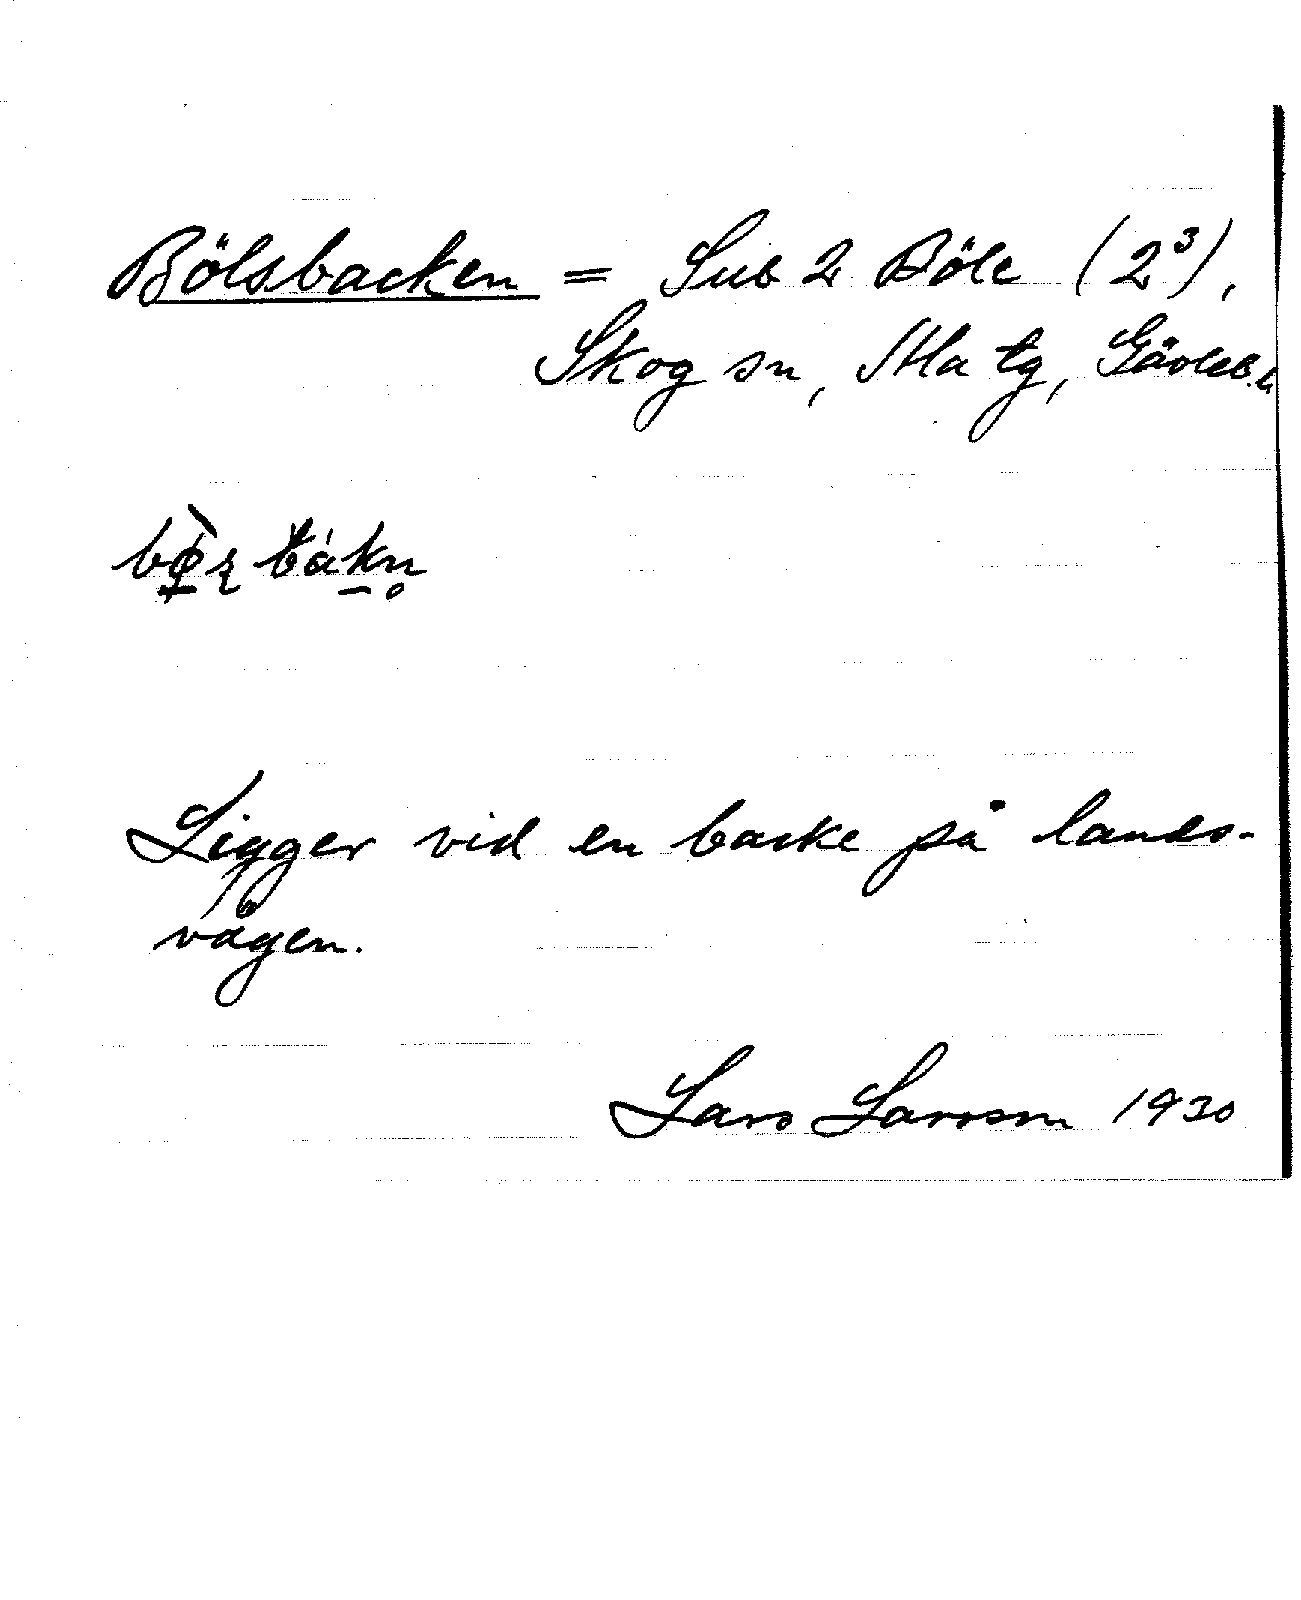 Bölsbacken = Sub 2 Böle (2³),
Skog sn, Ala tg, Gävleb. l.
Ligger vid en backe på lands-
vägen.
Lars Larsson 1930